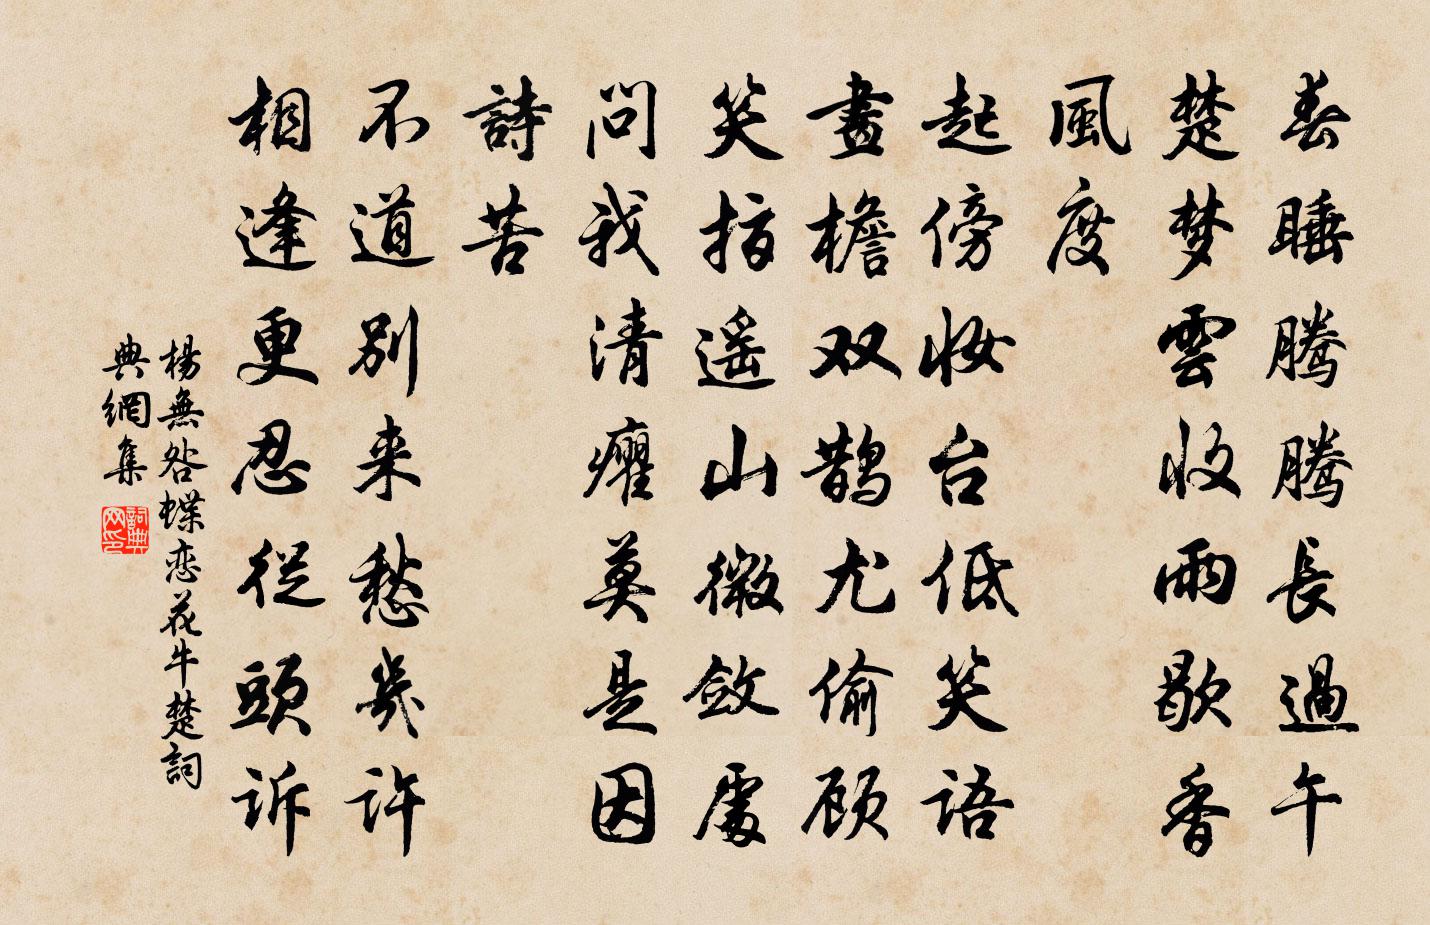 春睡腾腾長過午
楚梦雲收雨歇香
風度
起傍妝台低笑语
畫檐双鹊尤偷顾
笑指遥山微敛處
問我清癯莫是因
詩苦
不道别来愁幾许
相逢更忍従頭訴
楊無咎蝶恋花牛楚詞
典網集
詞典網印